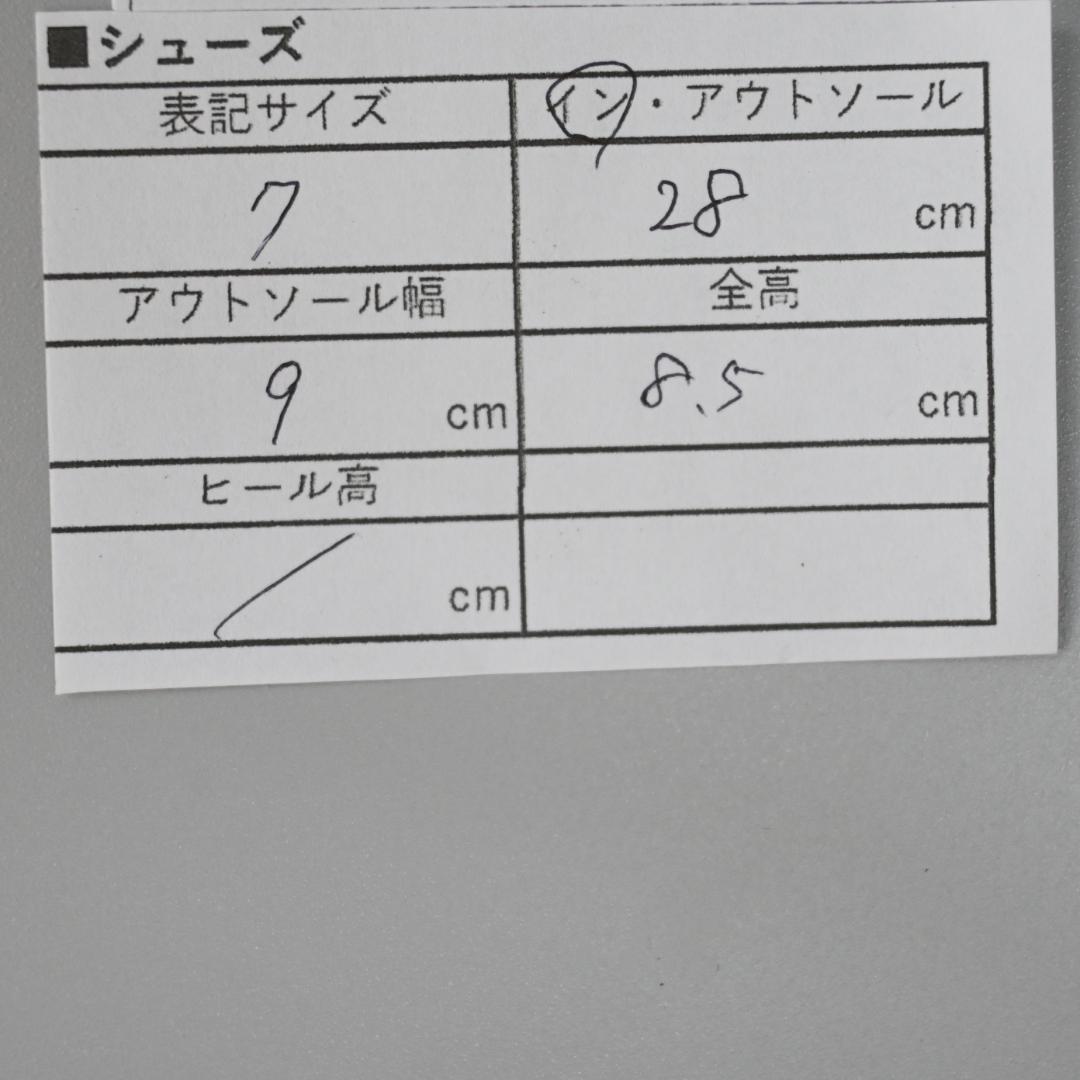 ■シューズ
表記サイズ イン・アウトソール
7 28 cm
アウトソール幅 全高
9 cm 8.5 cm
ヒール高
cm